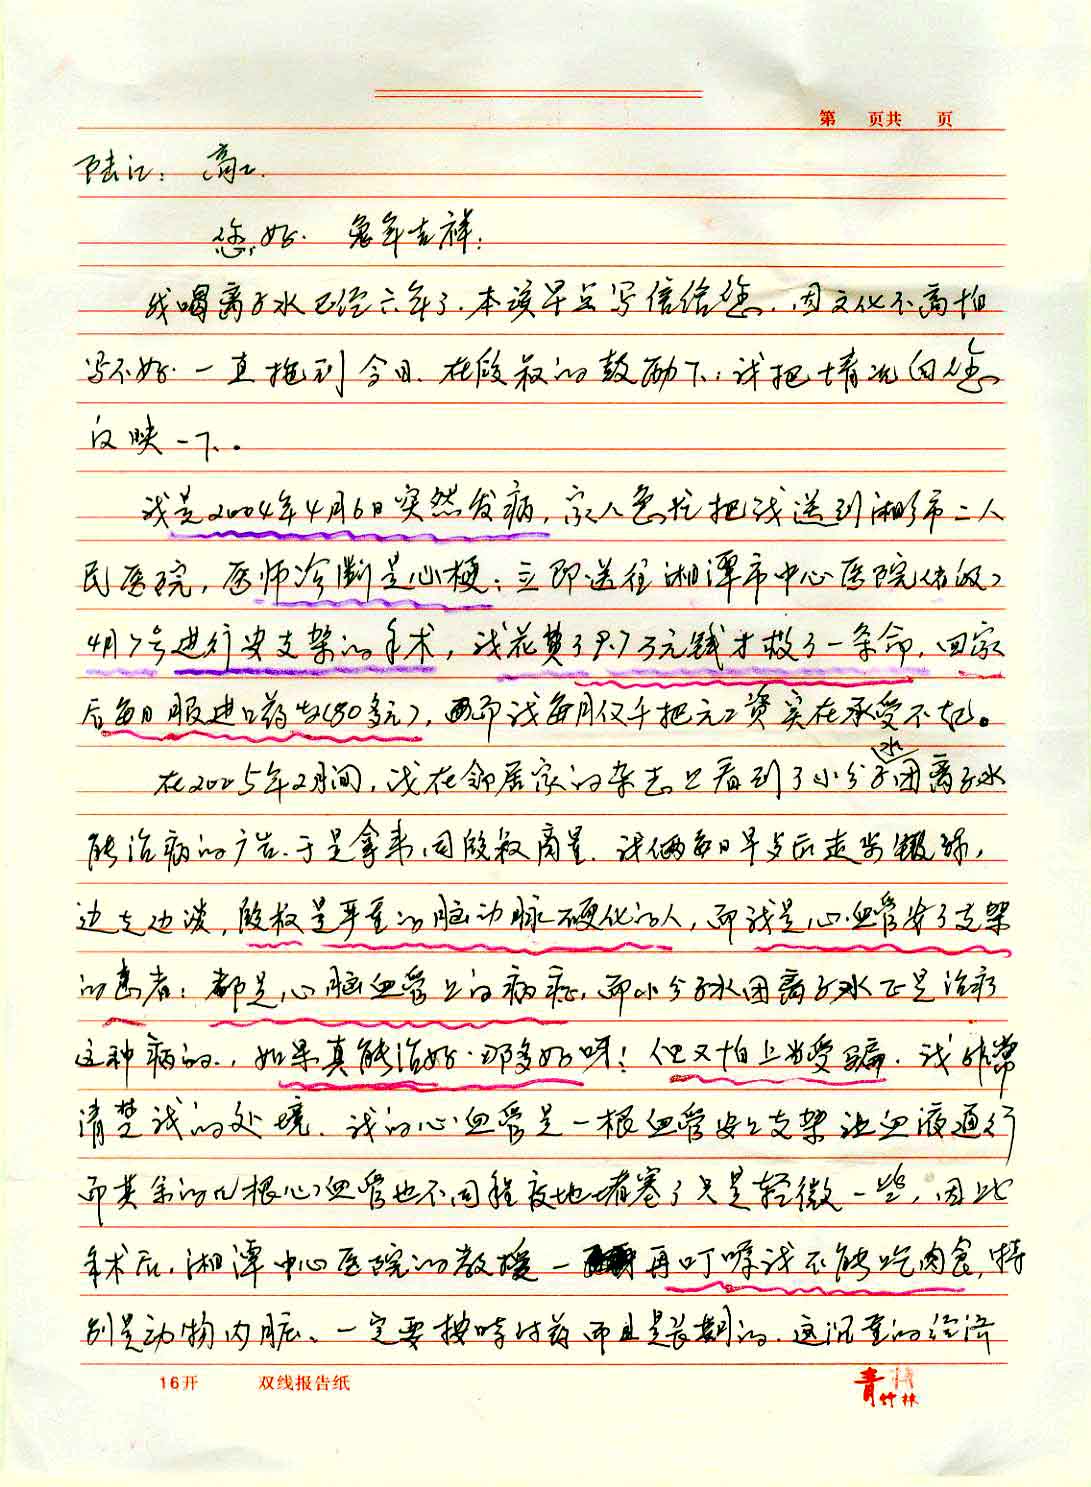 第 页共 页
陆江：高工.
您好. 兔年吉祥：
我喝离子水已经六年了.本该早点写信给您.因文化不高怕
写不好.一直拖到今日.在段叔的鼓励下：我把情况向您
反映一下。
我是2004年4月6日突然发病，家人急忙把我送到湘乡市二人
民医院，医师诊断是心梗：立即送往湘潭市中心医院
4月7号进行安支架的手术，我花费了 万元钱才救了一条命，回家
后每日服进口药 (80多元)，而我每月仅千把元工资实在承受不起。
在2005年2月间，我在邻居家的杂志上看到了小分子水团离子水
能治病的广告.于是拿来.同段叔商量.我俩每日早 后走步锻练，
边走边谈，段叔是严重的脑动脉硬化的人，而我是心血管安了支架
的患者：都是心脑血管上的病症，而小分子水团离子水正是治疗
这种病的.，如果真能治好.那多好呀！但又怕上当受骗.我非常
清楚我的处境.我的心血管是一根血管安上支架让血液通行
而其余的几根心血管也不同程度地堵塞了只是轻微一些，因此
手术后.湘潭中心医院的教授一再叮嘱我不能吃肉食，特
别是动物内脏、一定要按时付药而且是长期的.这沉重的经济
16开 双线报告纸
青竹林